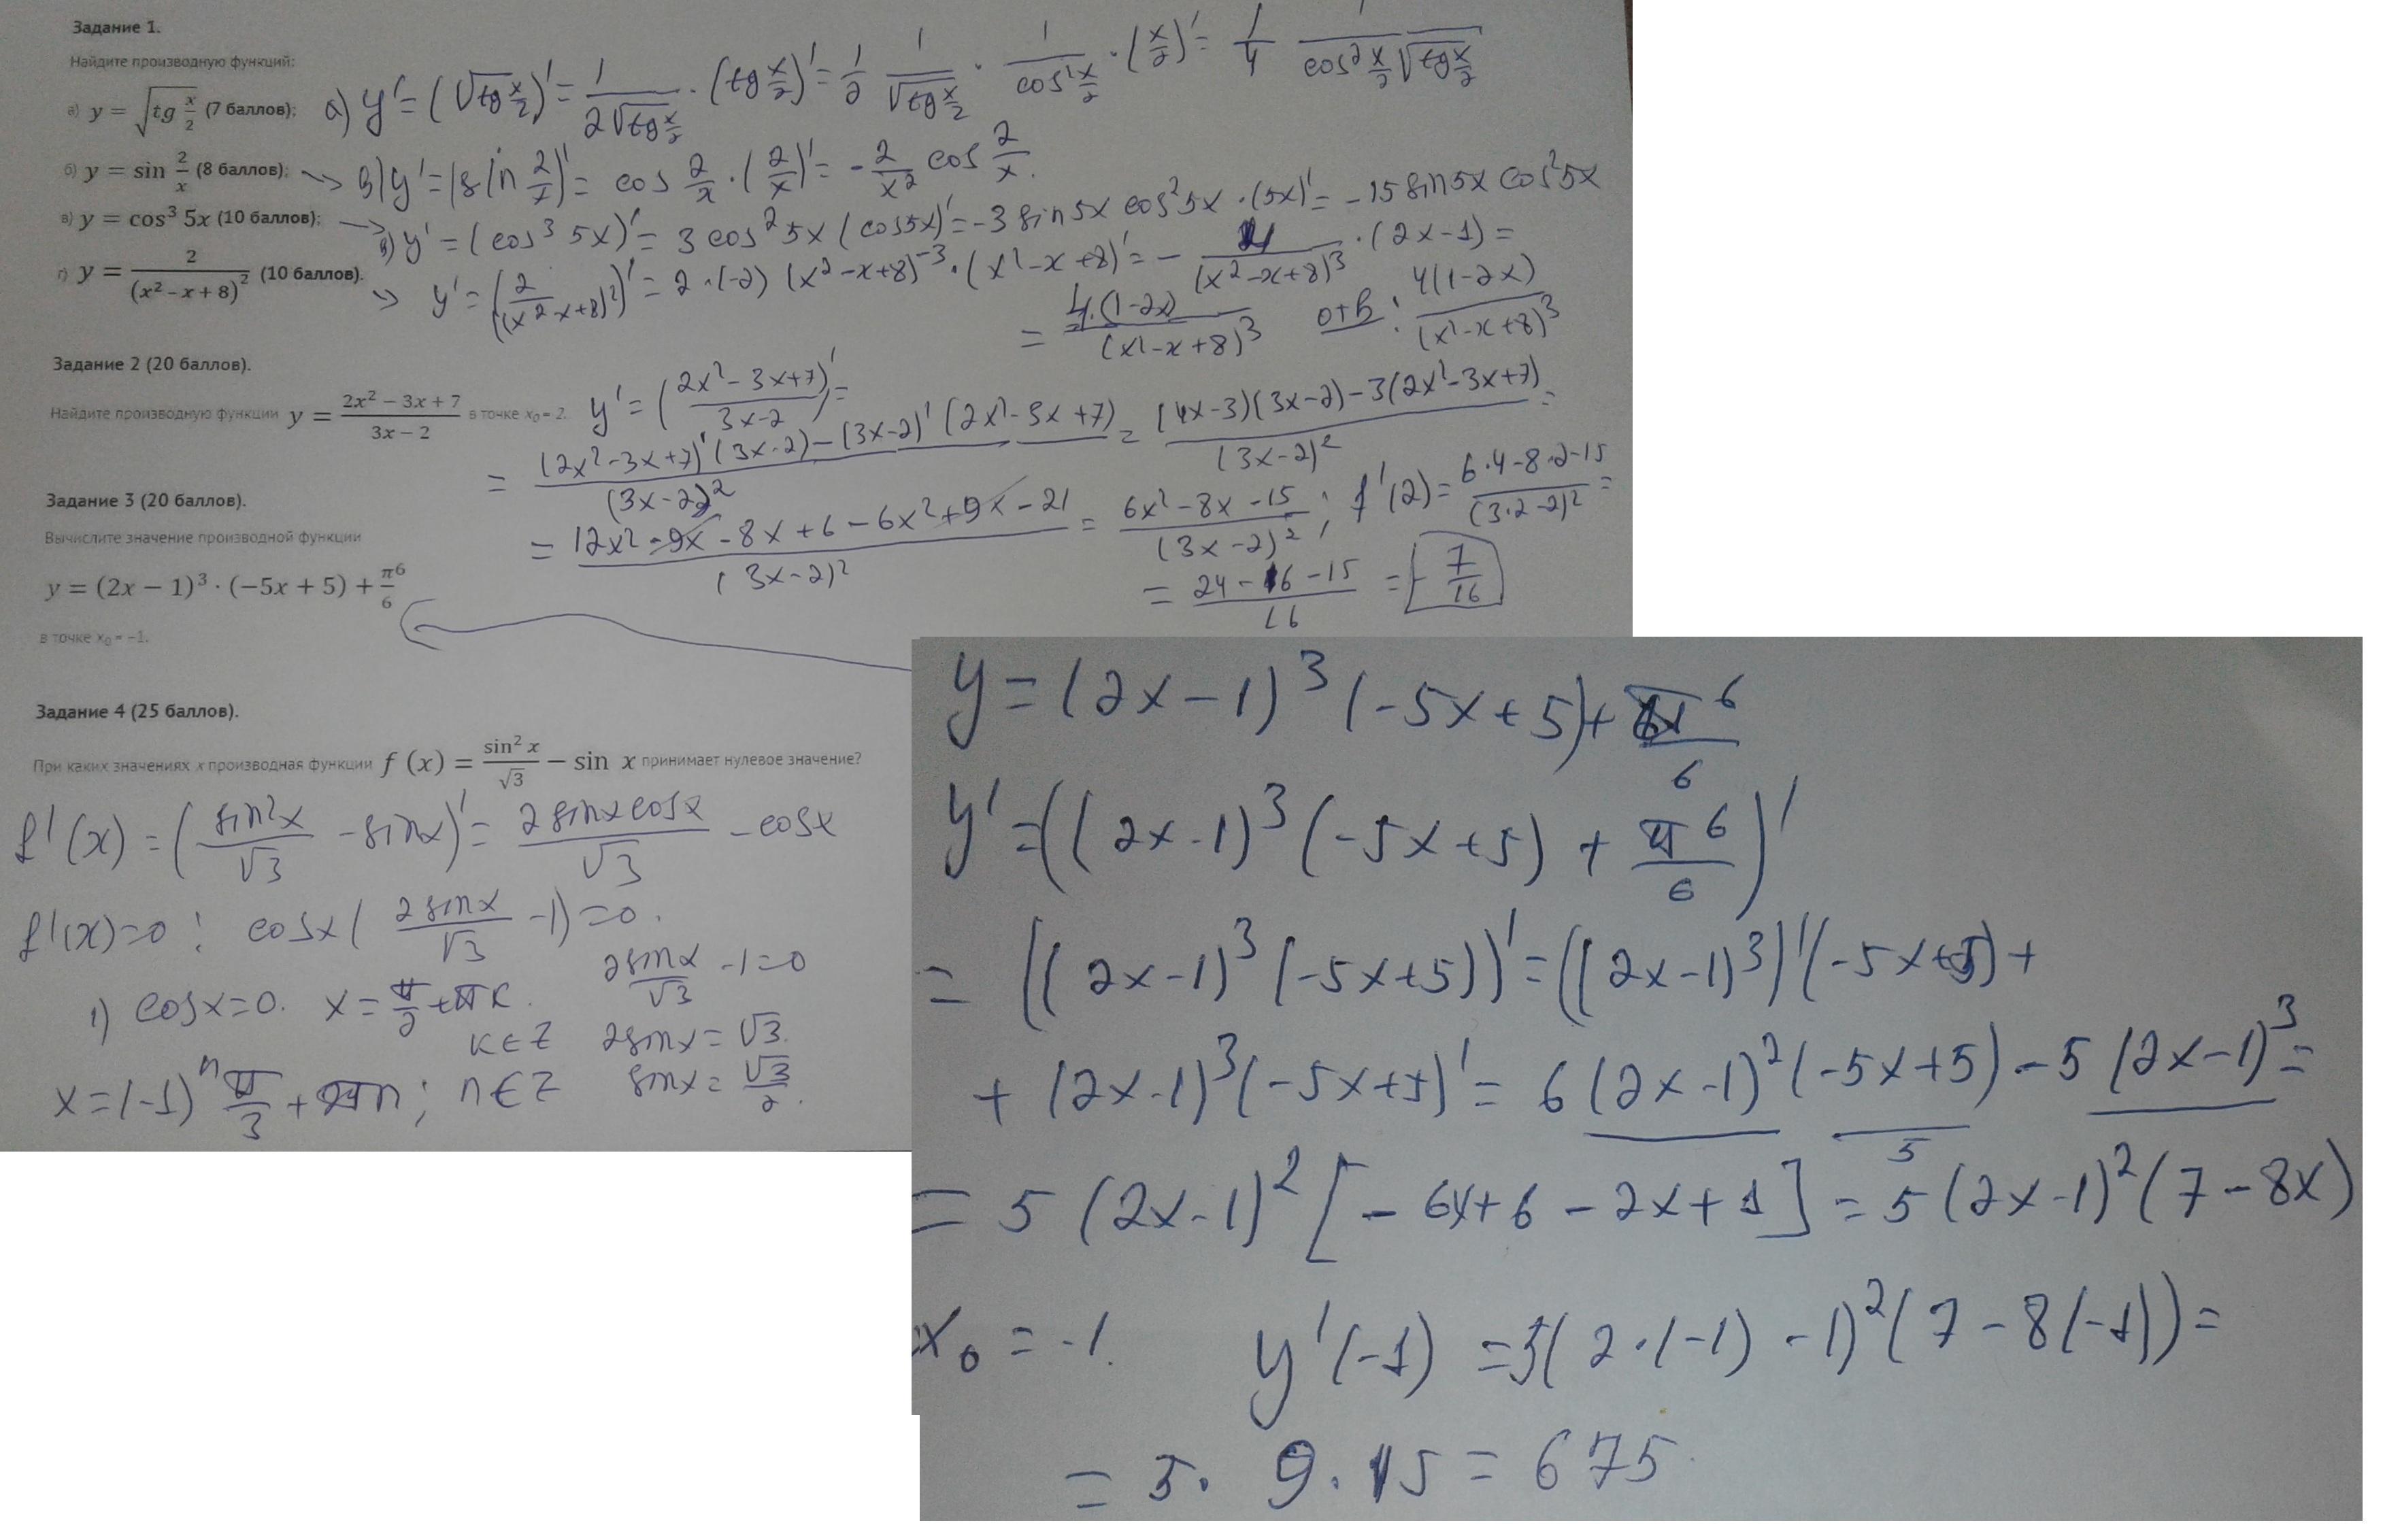 Задание 1.
Найдите производную функций:
а) y = √(tg x/2) (7 баллов);
а) y' = (√tg x/2)' = 1/(2√tg x/2) · (tg x/2)' = 1/2 1/(√tg x/2) · 1/(cos² x/2) · (x/2)' = 1/4 1/(cos² x/2 √tg x/2)
б) y = sin 2/x (8 баллов);
в) y' = (sin 2/x)' = cos 2/x · (2/x)' = - 2/x² cos 2/x.
в) y = cos³ 5x (10 баллов);
в) y' = (cos³ 5x)' = 3 cos² 5x (cos5x)' = -3 sin5x cos²5x · (5x)' = -15 sin5x cos²5x
г) y = 2/(x² – x + 8)² (10 баллов).
y' = (2/(x² - x + 8)²)' = 2 · (-2) (x² - x + 8)⁻³ · (x² - x + 8)' = - 4/(x² - x + 8)³ · (2x - 1) =
= 4·(1-2x)/(x² - x + 8)³ отв: 4(1-2x)/(x² - x + 8)³
Задание 2 (20 баллов).
Найдите производную функции y = (2x² – 3x + 7)/(3x – 2) в точке x₀ = 2.
y' = ((2x² - 3x + 7)/(3x - 2))' =
= ((2x² - 3x + 7)' (3x - 2) - (3x - 2)' (2x² - 3x + 7))/(3x - 2)² = ((4x - 3)(3x - 2) - 3(2x² - 3x + 7))/(3x - 2)² =
= (12x² - 9x - 8x + 6 - 6x² + 9x - 21)/(3x - 2)² = (6x² - 8x - 15)/(3x - 2)² ; f'(2) = (6·4 - 8·2 - 15)/(3·2 - 2)² =
= (24 - 16 - 15)/16 = - 7/16
Задание 3 (20 баллов).
Вычислите значение производной функции
y = (2x – 1)³ · (–5x + 5) + π⁶/6
в точке x₀ = –1.
Задание 4 (25 баллов).
При каких значениях x производная функции f (x) = sin² x/√3 – sin x принимает нулевое значение?
f'(x) = (sin²x/√3 - sinx)' = 2sinxcosx/√3 - cosx
f'(x)=0 : cosx (2sinx/√3 - 1) = 0.
1) cosx=0. x = π/2 + πk. k∈Z
2sinx/√3 - 1 = 0
2sinx = √3.
sinx = √3/2.
x = (-1)ⁿ π/3 + πn; n∈Z
y = (2x - 1)³ (-5x + 5) + π⁶/6
y' = ((2x - 1)³ (-5x + 5) + π⁶/6)'
= ((2x - 1)³ (-5x + 5))' = ((2x - 1)³)' (-5x + 5) +
+ (2x - 1)³ (-5x + 5)' = 6 (2x - 1)² (-5x + 5) - 5 (2x - 1)³ =
5
= 5 (2x - 1)² [- 6x + 6 - 2x + 1] = 5 (2x - 1)² (7 - 8x)
x₀ = -1. y'(-1) = 5(2·(-1) - 1)² (7 - 8(-1)) =
= 5 · 9 · 15 = 675.